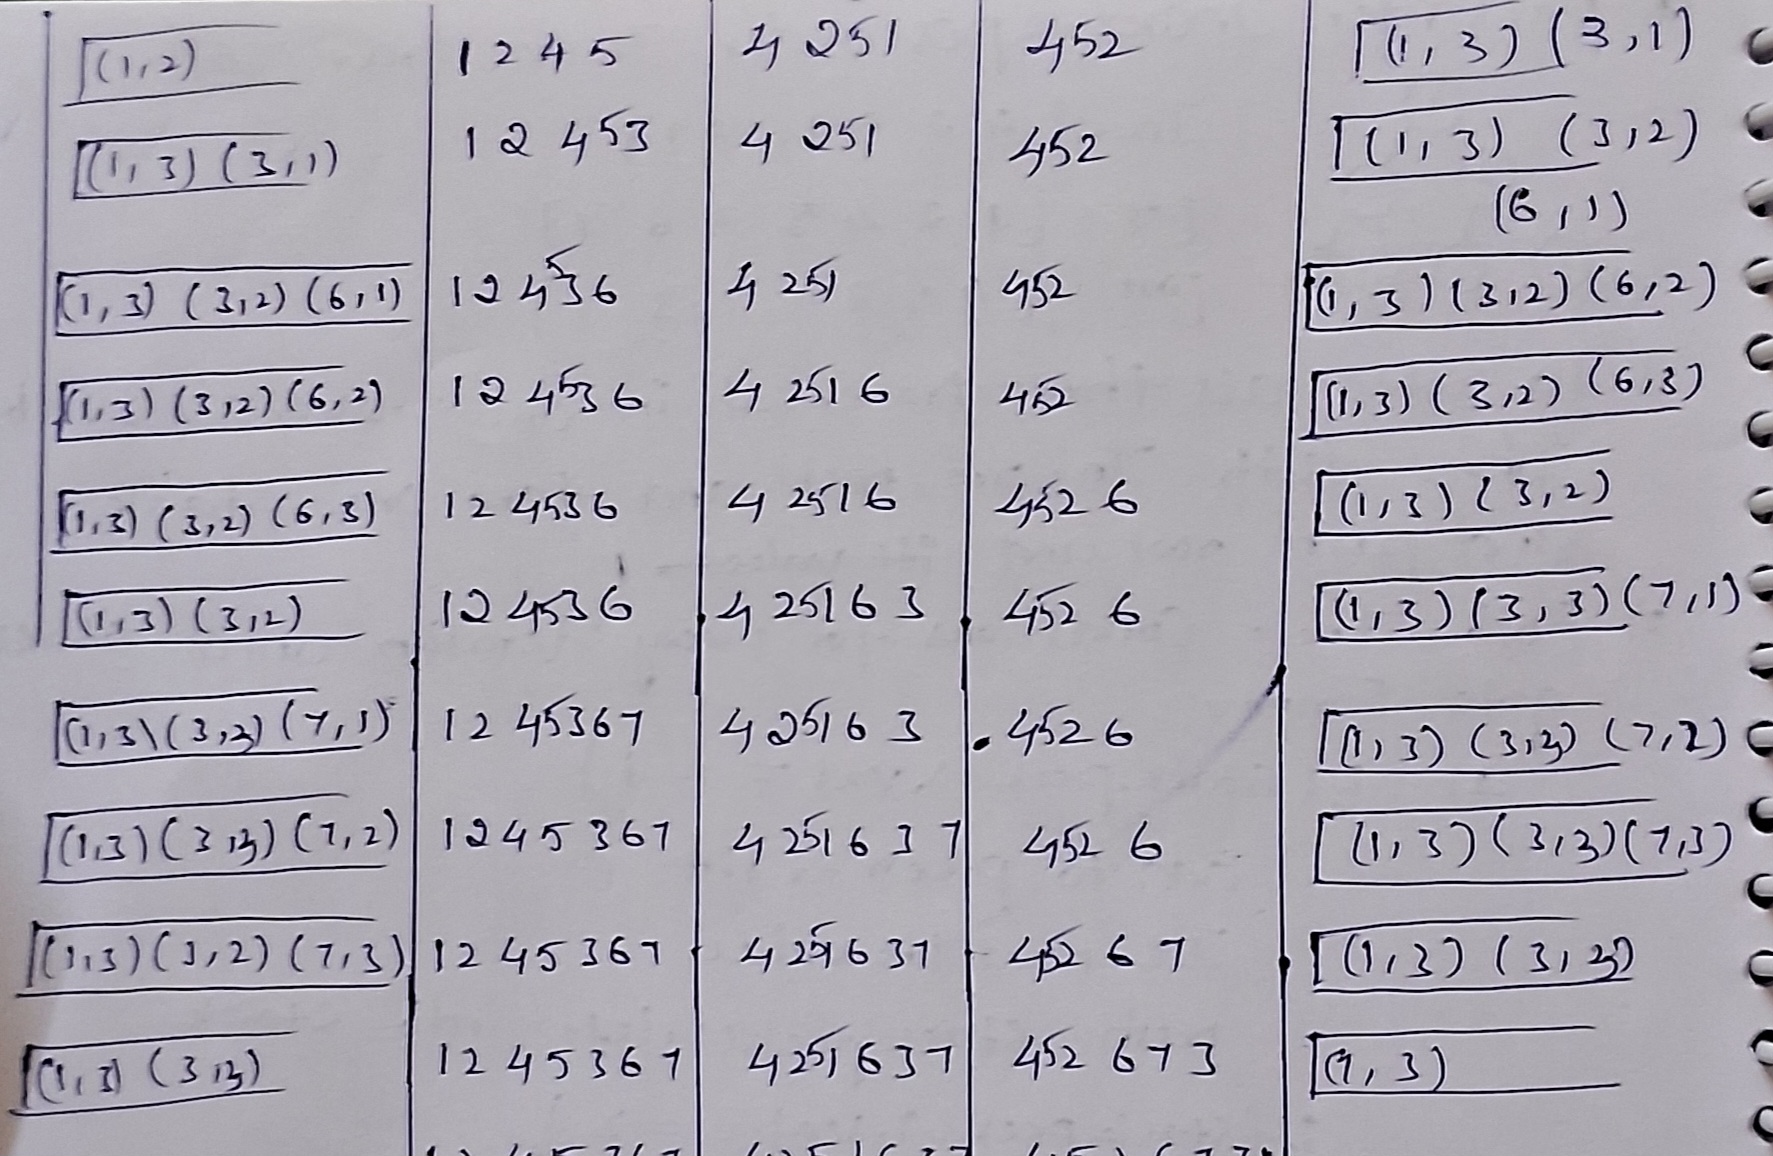 (1,2) 1 2 4 5 4 251 452 (1,3) (3,1)
(1,3) (3,1) 1 2 453 4 251 452 (1,3) (3,2)
(6,1)
(1,3) (3,2) (6,1) 12 4536 4 251 452 (1,3) (3,2) (6,2)
(1,3) (3,2) (6,2) 12 4536 4 2516 452 (1,3) (3,2) (6,3)
(1,3) (3,2) (6,3) 12 4536 4 2516 452 6 (1,3) (3,2)
(1,3) (3,2) 12 4536 4 25163 452 6 (1,3) (3,3) (7,1)
(1,3) (3,3) (7,1) 12 45367 4 2516 3 4526 (1,3) (3,3) (7,2)
(1,3) (3,3) (7,2) 1245 367 4 2516 37 452 6 (1,3) (3,3) (7,3)
(1,3) (3,2) (7,3) 12 45 367 4 251637 452 67 (1,3) (3,3)
(1,3) (3,3) 12 45367 4251637 452 673 (1,3)